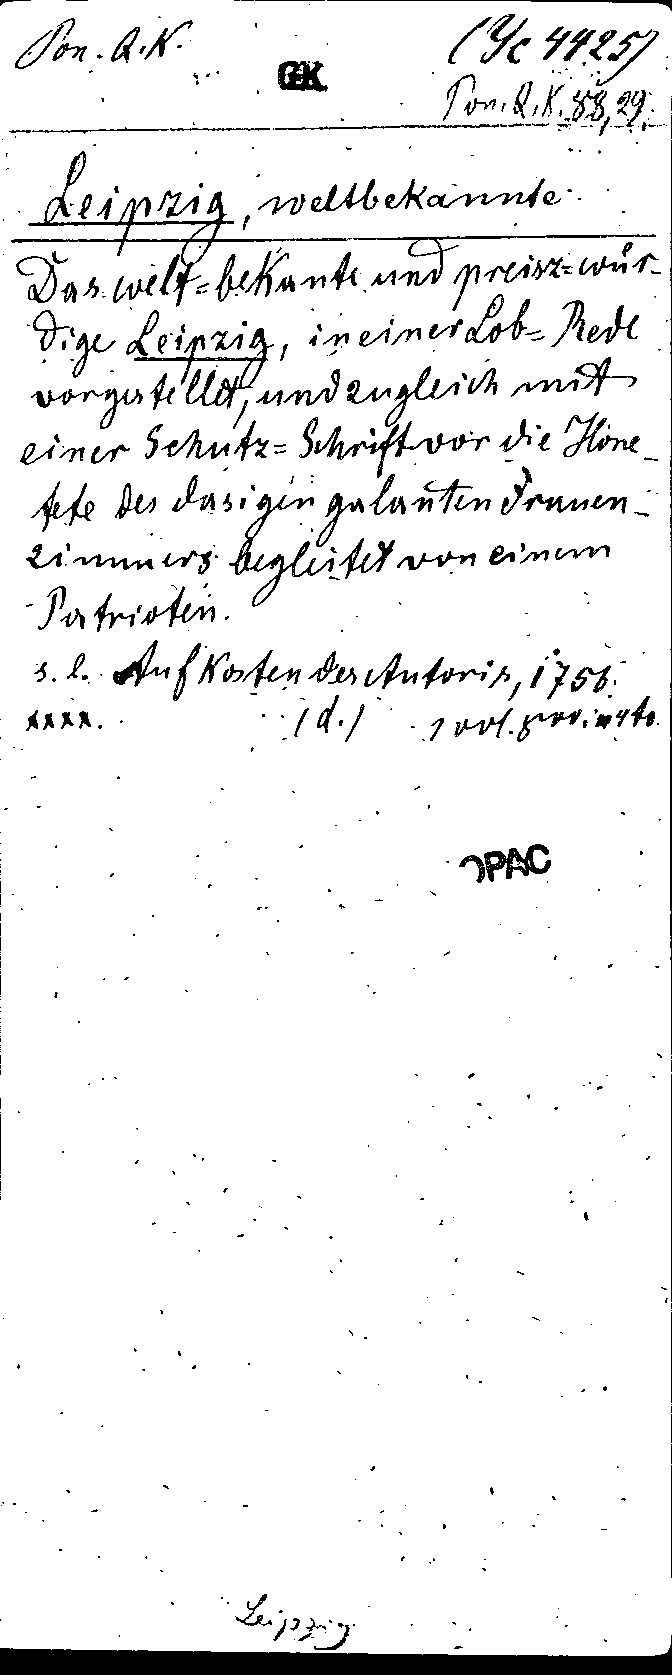 Pon. Q. K.
(Yc 4425)
GK
Pon. Q. K. 58, 29.
Leipzig, weltbekannte
Das welt=bekante und preisz=wür-
dige Leipzig, in einer Lob=Rede
vorgestellet, und zugleich mit
einer Schutz=Schrift vor die Hone-
tete des dasigen galanten Frauen-
zimmers begleitet von einem
Patrioten.
s. l. Auf Kosten des Autoris, 175
xxxx. (d.) 1 vol. in 4to
OPAC
Leipzig